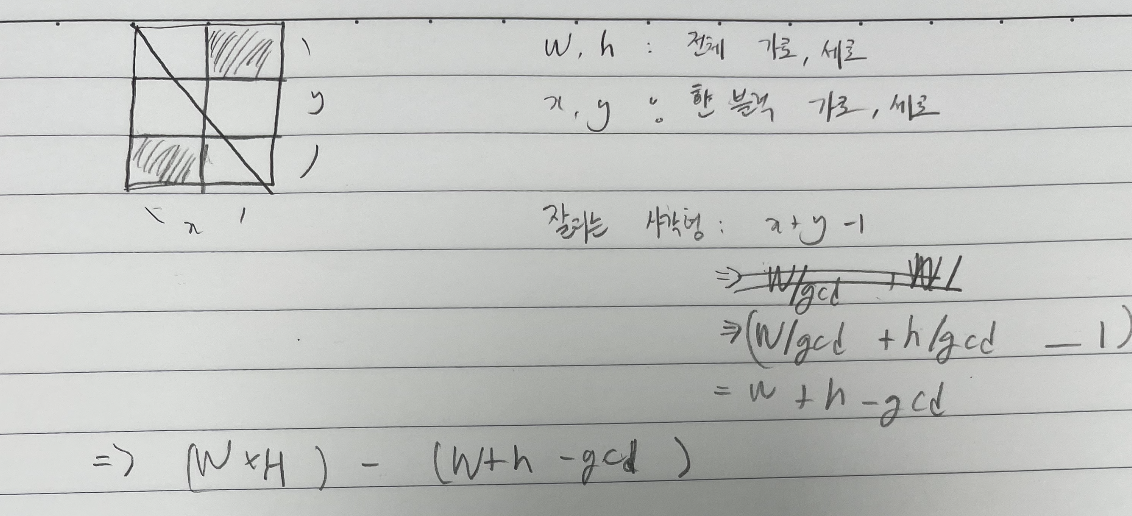 W, h : 전체 가로, 세로
y
x, y : 한 블럭 가로, 세로
x
잘리는 사각형 : x + y - 1
⇒ W/gcd
⇒ (W/gcd + h/gcd - 1)
= w + h - gcd
=> (W × H) - (W+h - gcd)